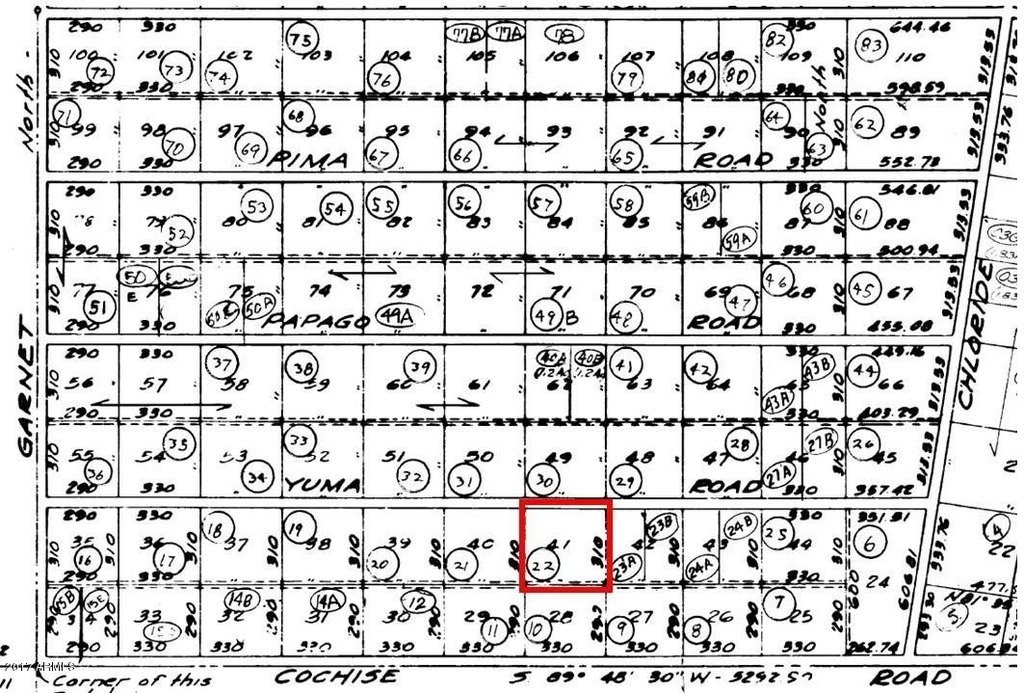 290 330 75 77B 77A 78 82 644.46
310 100 101 102 103 104 105 106 107 108 109 310 83 110 313.53
72 73 74 76 79 84 80
290 330 330 598.59
North
71 68 64 North 62
310 99 98 97 96 95 94 93 92 91 90 310 89 313.53 333.76
70 69 67 66 65 63
290 330 PIMA ROAD 330 552.73
290 330 59B 330 546.81
53 54 55 56 57 58 60 61
310 79 80 81 82 83 84 85 86 87 310 88 313.53
52 59A
290 330 330 500.94
50 46 45
310 77 E 76 75 74 73 72 71 70 69 68 310 67 313.53
51 50A 49A 49 B 48 47
290 330 PAPAGO ROAD 330 455.08
GARNET
CHLORIDE
290 330 37 38 39 40A 40B 41 42 330 43B 44 449.16
310 56 57 58 59 60 61 62 63 64 310 66 313.53
43A
290 330 330 403.29
35 33 28 27B 26
310 55 54 53 52 51 50 49 48 47 46 310 45 313.53
36 34 32 31 30 29 27A
290 330 YUMA ROAD 330 357.42
290 330 18 19 23B 24B 25 351.31
35 310 36 37 310 38 39 310 40 310 41 310 42 310 43 310 44 6 333.76
16 17 20 21 22 23A 24A 24 22
290 330 330 600 606.81 477.
14B 14A 12 7 5
290 290 33 32 290 31 290 30 290 29 290 28 290 27 290 26 290 25 293.30 23
11 10 9 8
290 330 330 330 330 330 330 330 330 262.74 606.
2017 ARMLS
Corner of this COCHISE S 89° 48' 30" W - 5292.50 ROAD